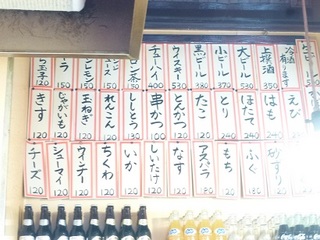 冷酒有ります
上撰酒 350
大ビール 530
小ビール 370
黒ビール 380
ウイスキー 530
チューハイ 400
ロン茶 130
レモン 150
ース 150
ラ 150
ら玉子 120
えび
はも
ほたて 240
とり
たこ
とんかつ
串かつ 100
ししとう 130
れんこん 120
玉ねぎ 120
じゃがいも 120
きす 120
砂ずり
ふぐ
もち 120
アスパラ
なす 120
しいたけ 120
いか 120
ちくわ 120
ウインナー 120
シューマイ 120
チーズ 120